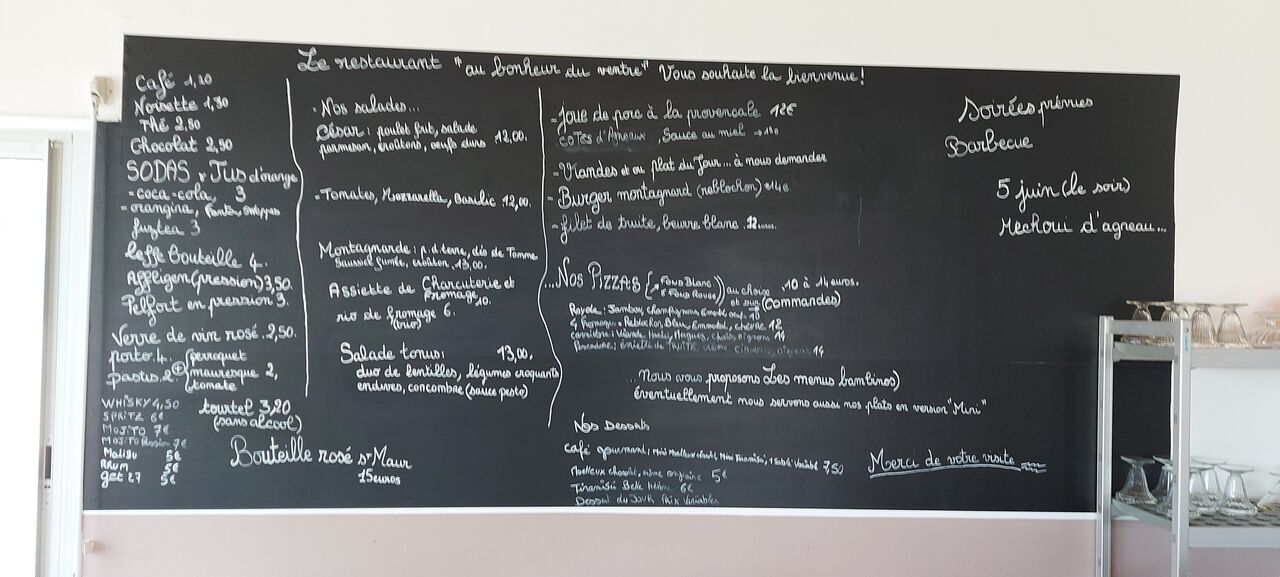 Le restaurant "au bonheur du ventre" Vous souhaite la bienvenue!
Café 1,20
Noisette 1,30
Thé 2,50
Chocolat 2,50
SODAS Jus d'orange
- coca-cola, 3
- orangina,
fuztea 3
Leffe bouteille 4.
Affligen (pression) 3,50.
Pelfort en pression 3.
Verre de vin rosé. 2,50.
porto. 4.
pastis. 2. +
perroquet
mauresque 2,
tomate
WHISKY 4,50
SPRITZ 6€
MOJITO 7€
MOJITO Passion 7€
Malibu 5€
Rhum 5€
get 27 5€
tourtel 3,20
(sans alcool)
Bouteille rosé St Maur
15 euros
- Nos salades...
César: poulet frit, salade
parmesan, croûtons, oeufs durs 12,00.
- Tomates, Mozzarella, Basilic 12,00.
Montagnarde: p. d terre, dés de Tomme
Saussice fumée, croûton, 13,00.
Assiette de Charcuterie et
fromage 10.
rio de fromage 6.
(brio)
Salade tonus: 13,00,
duo de lentilles, légumes croquants
endives, concombre (sauce pesto)
- Joue de porc à la provencale 12€
COTES d'Agneaux, Sauce au miel
- Viandes et ou plat du Jour... à nous demander
- Burger montagnard (reblochon) 14€
- filet de truite, beurre blanc. 12 euros.
...Nos PIZZAS (Fond Blanc
Fond Rouge) au choix 10 à 14 euros.
et sur (commandes)
Royale: Jambon, champignons, Emmental, oeuf. 10
4 fromages: Reblochon, Bleu, Emmental, chèvre 12
14
14
...Nous vous proposons Les menus bambinos)
éventuellement nous servons aussi nos plats en version "Mini"
Nos Desserts
café gourmand: Mini Moelleux chocolat, Mini Tiramisu, 7,50
Moelleux chocolat, crème anglaise 5€
Tiramisu 6€
Dessert du Jour Prix Variables
Merci de votre visite
Soirées prévues
Barbecue
5 juin (le soir)
Mechoui d'agneau...